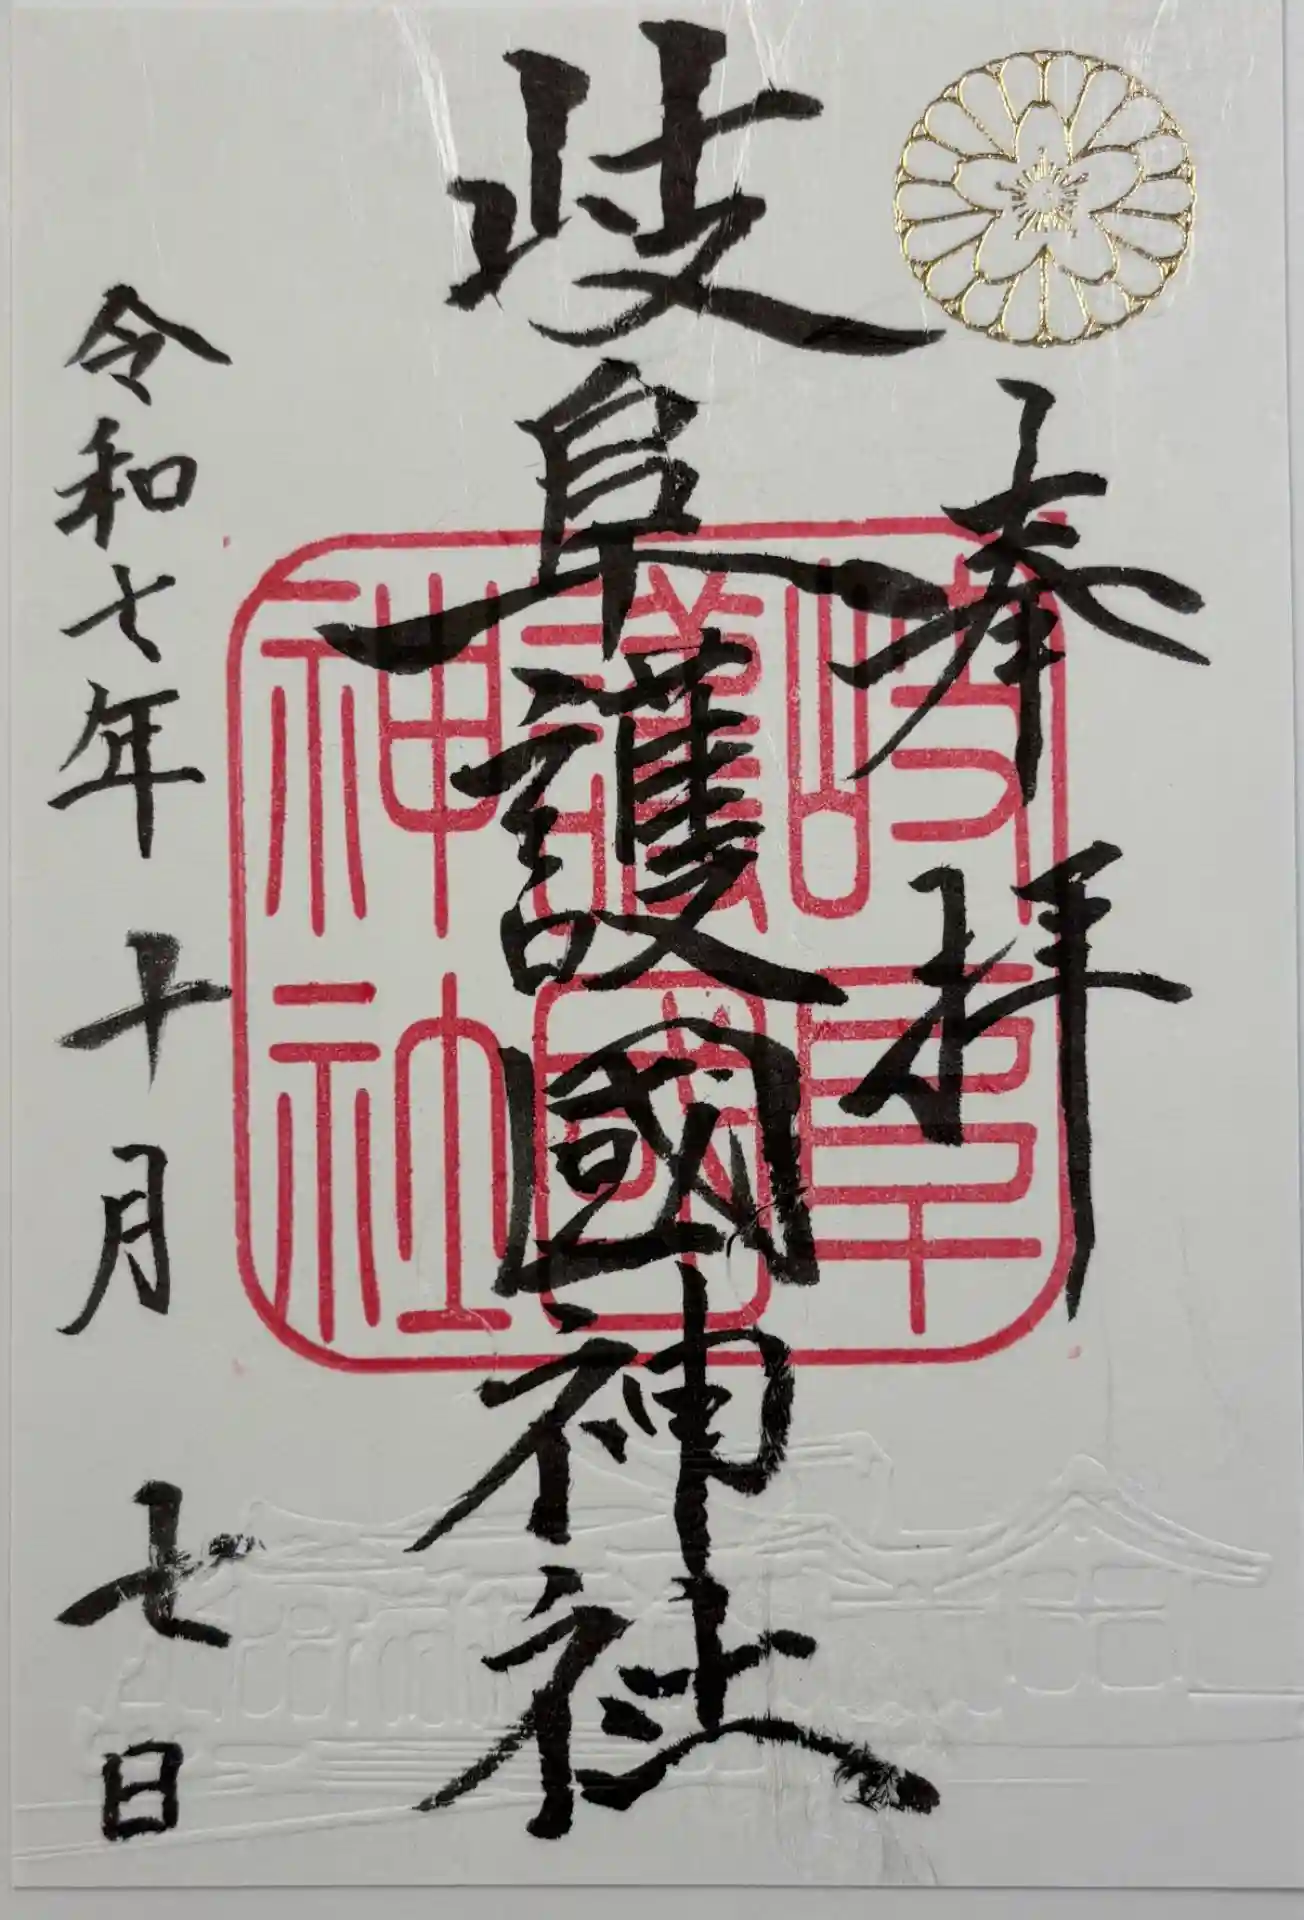 奉拝
岐阜護國神社
岐阜護國神社
令和七年十月七日